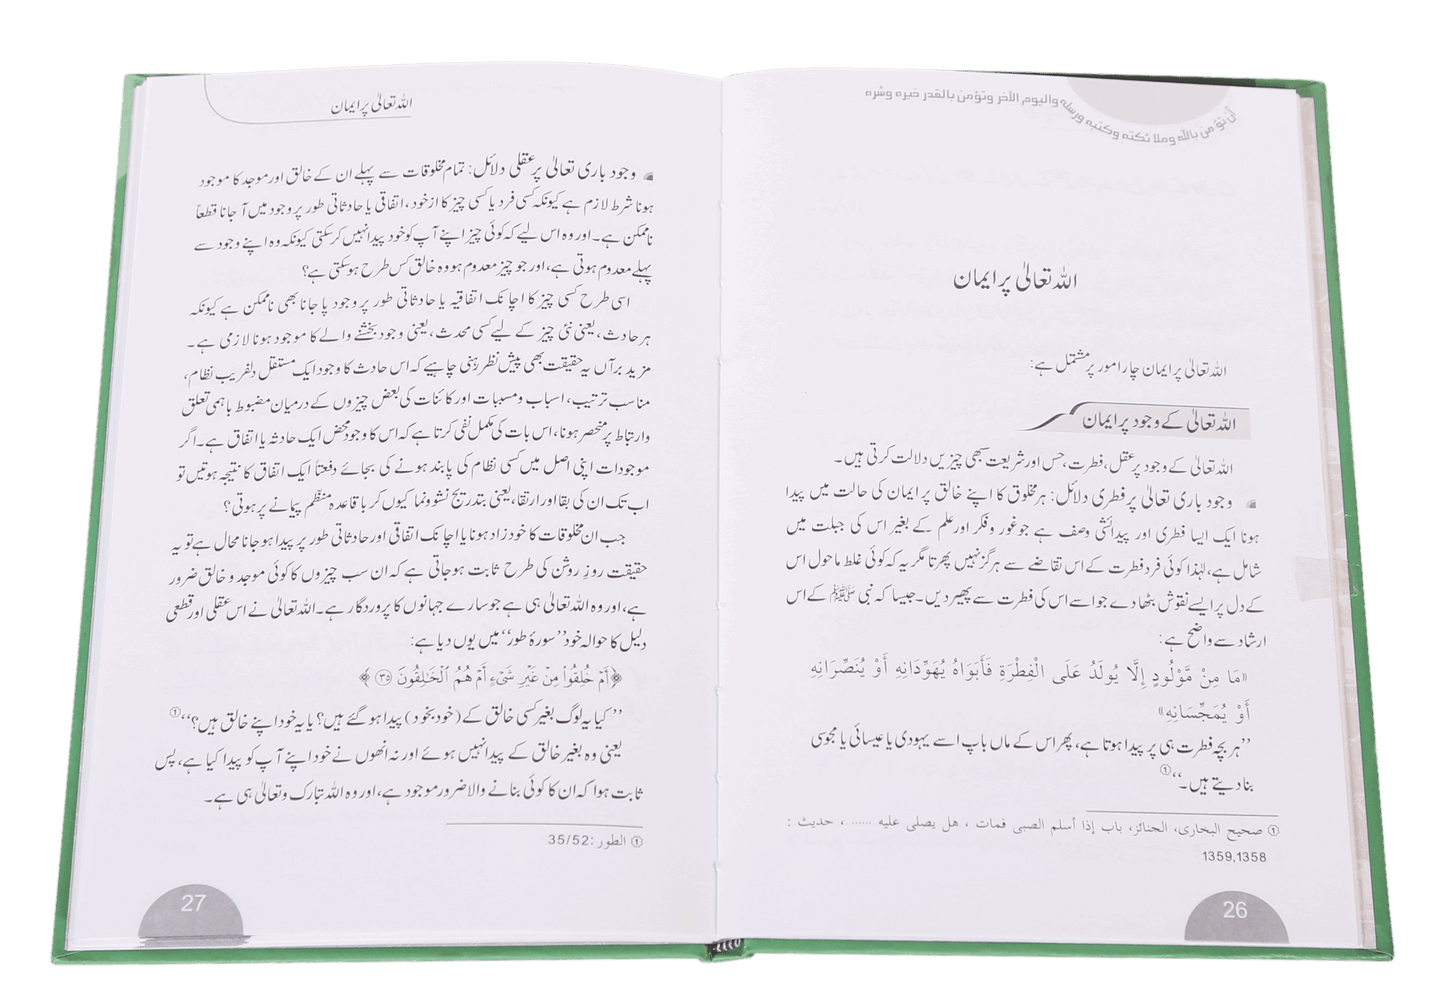 أن تؤمن بالله وملائكته وكتبه ورسله واليوم الآخر وتؤمن بالقدر خيره وشره
اللہ تعالیٰ پر ایمان
اللہ تعالیٰ پر ایمان چار امور پر مشتمل ہے:
اللہ تعالیٰ کے وجود پر ایمان
اللہ تعالیٰ کے وجود پر عقل، فطرت، حس اور شریعت سبھی چیزیں دلالت کرتی ہیں۔
وجود باری تعالیٰ پر فطری دلائل: ہر مخلوق کا اپنے خالق پر ایمان کی حالت میں پیدا
ہونا ایک ایسا فطری اور پیدائشی وصف ہے جو غور و فکر اور علم کے بغیر اس کی جبلت میں
شامل ہے، لہٰذا کوئی فرد فطرت کے اس تقاضے سے ہرگز نہیں پھرتا مگر یہ کہ کوئی غلط ماحول اس
کے دل پر ایسے نقوش بٹھا دے جو اسے اس کی فطرت سے پھیر دیں۔ جیسا کہ نبی ﷺ کے اس
ارشاد سے واضح ہے:
«مَا مِنْ مَّوْلُودٍ إِلَّا يُولَدُ عَلَى الْفِطْرَةِ فَأَبَوَاهُ يُهَوِّدَانِهِ أَوْ يُنَصِّرَانِهِ
أَوْ يُمَجِّسَانِهِ»
”ہر بچہ فطرت ہی پر پیدا ہوتا ہے، پھر اس کے ماں باپ اسے یہودی یا عیسائی یا مجوسی
بنا دیتے ہیں۔“①
① صحيح البخاری، الجنائز، باب إذا أسلم الصبی فمات ، هل یصلی علیه ...... ، حدیث :
1359,1358
26
اللہ تعالیٰ پر ایمان
وجود باری تعالیٰ پر عقلی دلائل: تمام مخلوقات سے پہلے ان کے خالق اور موجد کا موجود
ہونا شرط لازم ہے کیونکہ کسی فرد یا کسی چیز کا ازخود، اتفاقی یا حادثاتی طور پر وجود میں آ جانا قطعاً
ناممکن ہے۔ اور وہ اس لیے کہ کوئی چیز اپنے آپ کو خود پیدا نہیں کر سکتی کیونکہ وہ اپنے وجود سے
پہلے معدوم ہوتی ہے، اور جو چیز معدوم ہو وہ خالق کس طرح ہو سکتی ہے؟
اسی طرح کسی چیز کا اچانک اتفاقیہ یا حادثاتی طور پر وجود پا جانا بھی ناممکن ہے کیونکہ
ہر حادث، یعنی نئی چیز کے لیے کسی محدث، یعنی وجود بخشنے والے کا موجود ہونا لازمی ہے۔
مزید برآں یہ حقیقت بھی پیش نظر رہنی چاہیے کہ اس حادث کا وجود ایک مستقل دلفریب نظام،
مناسب ترتیب، اسباب و مسببات اور کائنات کی بعض چیزوں کے درمیان مضبوط باہمی تعلق
وارتباط پر منحصر ہونا، اس بات کی مکمل نفی کرتا ہے کہ اس کا وجود محض ایک حادثہ یا اتفاق ہے۔ اگر
موجودات اپنی اصل میں کسی نظام کی پابند ہونے کی بجائے دفعتاً ایک اتفاق کا نتیجہ ہوتیں تو
اب تک ان کی بقا اور ارتقا، یعنی بتدریج نشوونما کیوں کر باقاعدہ منظم پیمانے پر ہوتی؟
جب ان مخلوقات کا خود زاد ہونا یا اچانک اتفاقی اور حادثاتی طور پر پیدا ہو جانا محال ہے تو یہ
حقیقت روزِ روشن کی طرح ثابت ہو جاتی ہے کہ ان سب چیزوں کا کوئی موجد و خالق ضرور
ہے، اور وہ اللہ تعالیٰ ہی ہے جو سارے جہانوں کا پروردگار ہے۔ اللہ تعالیٰ نے اس عقلی اور قطعی
دلیل کا حوالہ خود ”سورۂ طور“ میں یوں دیا ہے:
﴿أَمْ خُلِقُوا۟ مِنْ غَيْرِ شَىْءٍ أَمْ هُمُ ٱلْخَـٰلِقُونَ ۝٣٥﴾
”کیا یہ لوگ بغیر کسی خالق کے (خود بخود) پیدا ہو گئے ہیں؟ یا یہ خود اپنے خالق ہیں؟“①
یعنی وہ بغیر خالق کے پیدا نہیں ہوئے اور نہ انھوں نے خود اپنے آپ کو پیدا کیا ہے، پس
ثابت ہوا کہ ان کا کوئی بنانے والا ضرور موجود ہے، اور وہ اللہ تبارک وتعالیٰ ہی ہے۔
① الطور:35/52
27